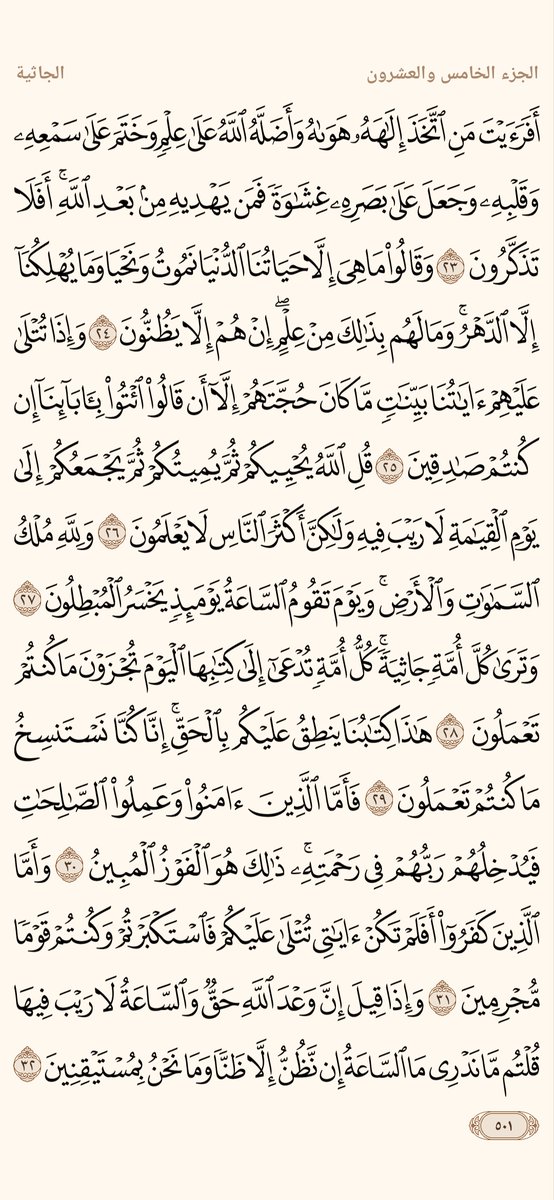 الجزء الخامس والعشرون
الجاثية
أَفَرَءَيۡتَ مَنِ ٱتَّخَذَ إِلَٰهَهُۥ هَوَىٰهُ وَأَضَلَّهُ ٱللَّهُ عَلَىٰ عِلۡمٖ وَخَتَمَ عَلَىٰ سَمۡعِهِۦ
وَقَلۡبِهِۦ وَجَعَلَ عَلَىٰ بَصَرِهِۦ غِشَٰوَةٗ فَمَن يَهۡدِيهِ مِنۢ بَعۡدِ ٱللَّهِۚ أَفَلَا
تَذَكَّرُونَ ٢٣ وَقَالُواْ مَا هِيَ إِلَّا حَيَاتُنَا ٱلدُّنۡيَا نَمُوتُ وَنَحۡيَا وَمَا يُهۡلِكُنَآ
إِلَّا ٱلدَّهۡرُۚ وَمَا لَهُم بِذَٰلِكَ مِنۡ عِلۡمٍۖ إِنۡ هُمۡ إِلَّا يَظُنُّونَ ٢٤ وَإِذَا تُتۡلَىٰ
عَلَيۡهِمۡ ءَايَٰتُنَا بَيِّنَٰتٖ مَّا كَانَ حُجَّتَهُمۡ إِلَّآ أَن قَالُواْ ٱئۡتُواْ بِـَٔابَآئِنَآ إِن
كُنتُمۡ صَٰدِقِينَ ٢٥ قُلِ ٱللَّهُ يُحۡيِيكُمۡ ثُمَّ يُمِيتُكُمۡ ثُمَّ يَجۡمَعُكُمۡ إِلَىٰ
يَوۡمِ ٱلۡقِيَٰمَةِ لَا رَيۡبَ فِيهِ وَلَٰكِنَّ أَكۡثَرَ ٱلنَّاسِ لَا يَعۡلَمُونَ ٢٦ وَلِلَّهِ مُلۡكُ
ٱلسَّمَٰوَٰتِ وَٱلۡأَرۡضِۚ وَيَوۡمَ تَقُومُ ٱلسَّاعَةُ يَوۡمَئِذٖ يَخۡسَرُ ٱلۡمُبۡطِلُونَ ٢٧
وَتَرَىٰ كُلَّ أُمَّةٖ جَاثِيَةٗۚ كُلُّ أُمَّةٖ تُدۡعَىٰٓ إِلَىٰ كِتَٰبِهَا ٱلۡيَوۡمَ تُجۡزَوۡنَ مَا كُنتُمۡ
تَعۡمَلُونَ ٢٨ هَٰذَا كِتَٰبُنَا يَنطِقُ عَلَيۡكُم بِٱلۡحَقِّۚ إِنَّا كُنَّا نَسۡتَنسِخُ
مَا كُنتُمۡ تَعۡمَلُونَ ٢٩ فَأَمَّا ٱلَّذِينَ ءَامَنُواْ وَعَمِلُواْ ٱلصَّٰلِحَٰتِ
فَيُدۡخِلُهُمۡ رَبُّهُمۡ فِي رَحۡمَتِهِۦۚ ذَٰلِكَ هُوَ ٱلۡفَوۡزُ ٱلۡمُبِينُ ٣٠ وَأَمَّا
ٱلَّذِينَ كَفَرُوٓاْ أَفَلَمۡ تَكُنۡ ءَايَٰتِي تُتۡلَىٰ عَلَيۡكُمۡ فَٱسۡتَكۡبَرۡتُمۡ وَكُنتُمۡ قَوۡمٗا
مُّجۡرِمِينَ ٣١ وَإِذَا قِيلَ إِنَّ وَعۡدَ ٱللَّهِ حَقّٞ وَٱلسَّاعَةُ لَا رَيۡبَ فِيهَا
قُلۡتُم مَّا نَدۡرِي مَا ٱلسَّاعَةُ إِن نَّظُنُّ إِلَّا ظَنّٗا وَمَا نَحۡنُ بِمُسۡتَيۡقِنِينَ ٣٢
٥٠١